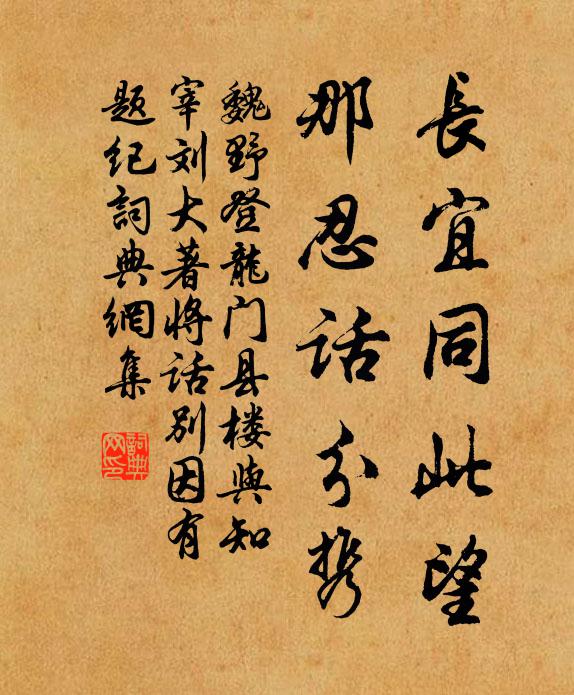 長宜同此望
那忍话分携
魏野登龍门县楼與知
宰刘大著将话别因有
题纪詞典網集
詞典
网印